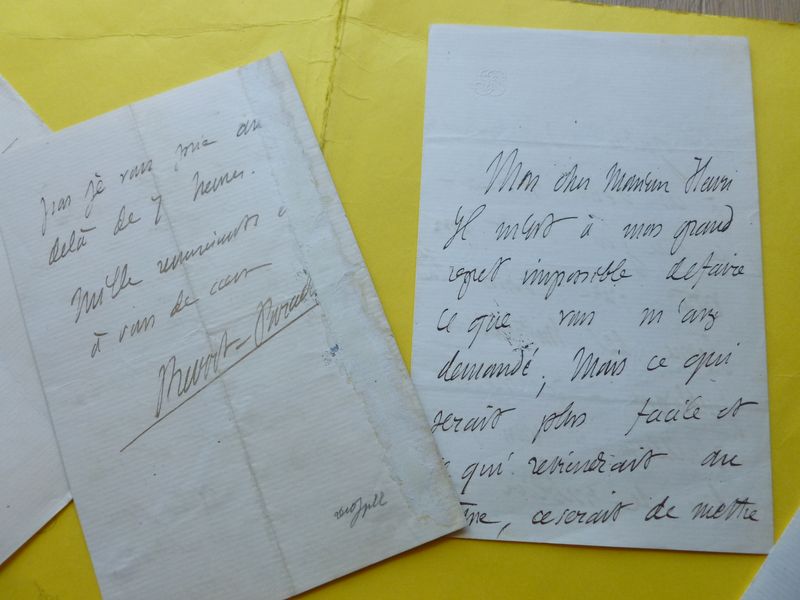 pas je vous prie au
delà de 7 heures.
Mille remerciements et
à vous de cœur
Prevost-Parad
Mon cher Monsieur Henri
Il m'est à mon grand
regret impossible de faire
ce que vous m'avez
demandé; Mais ce qui
serait plus facile et
qui reviendrait au
, ce serait de mettre